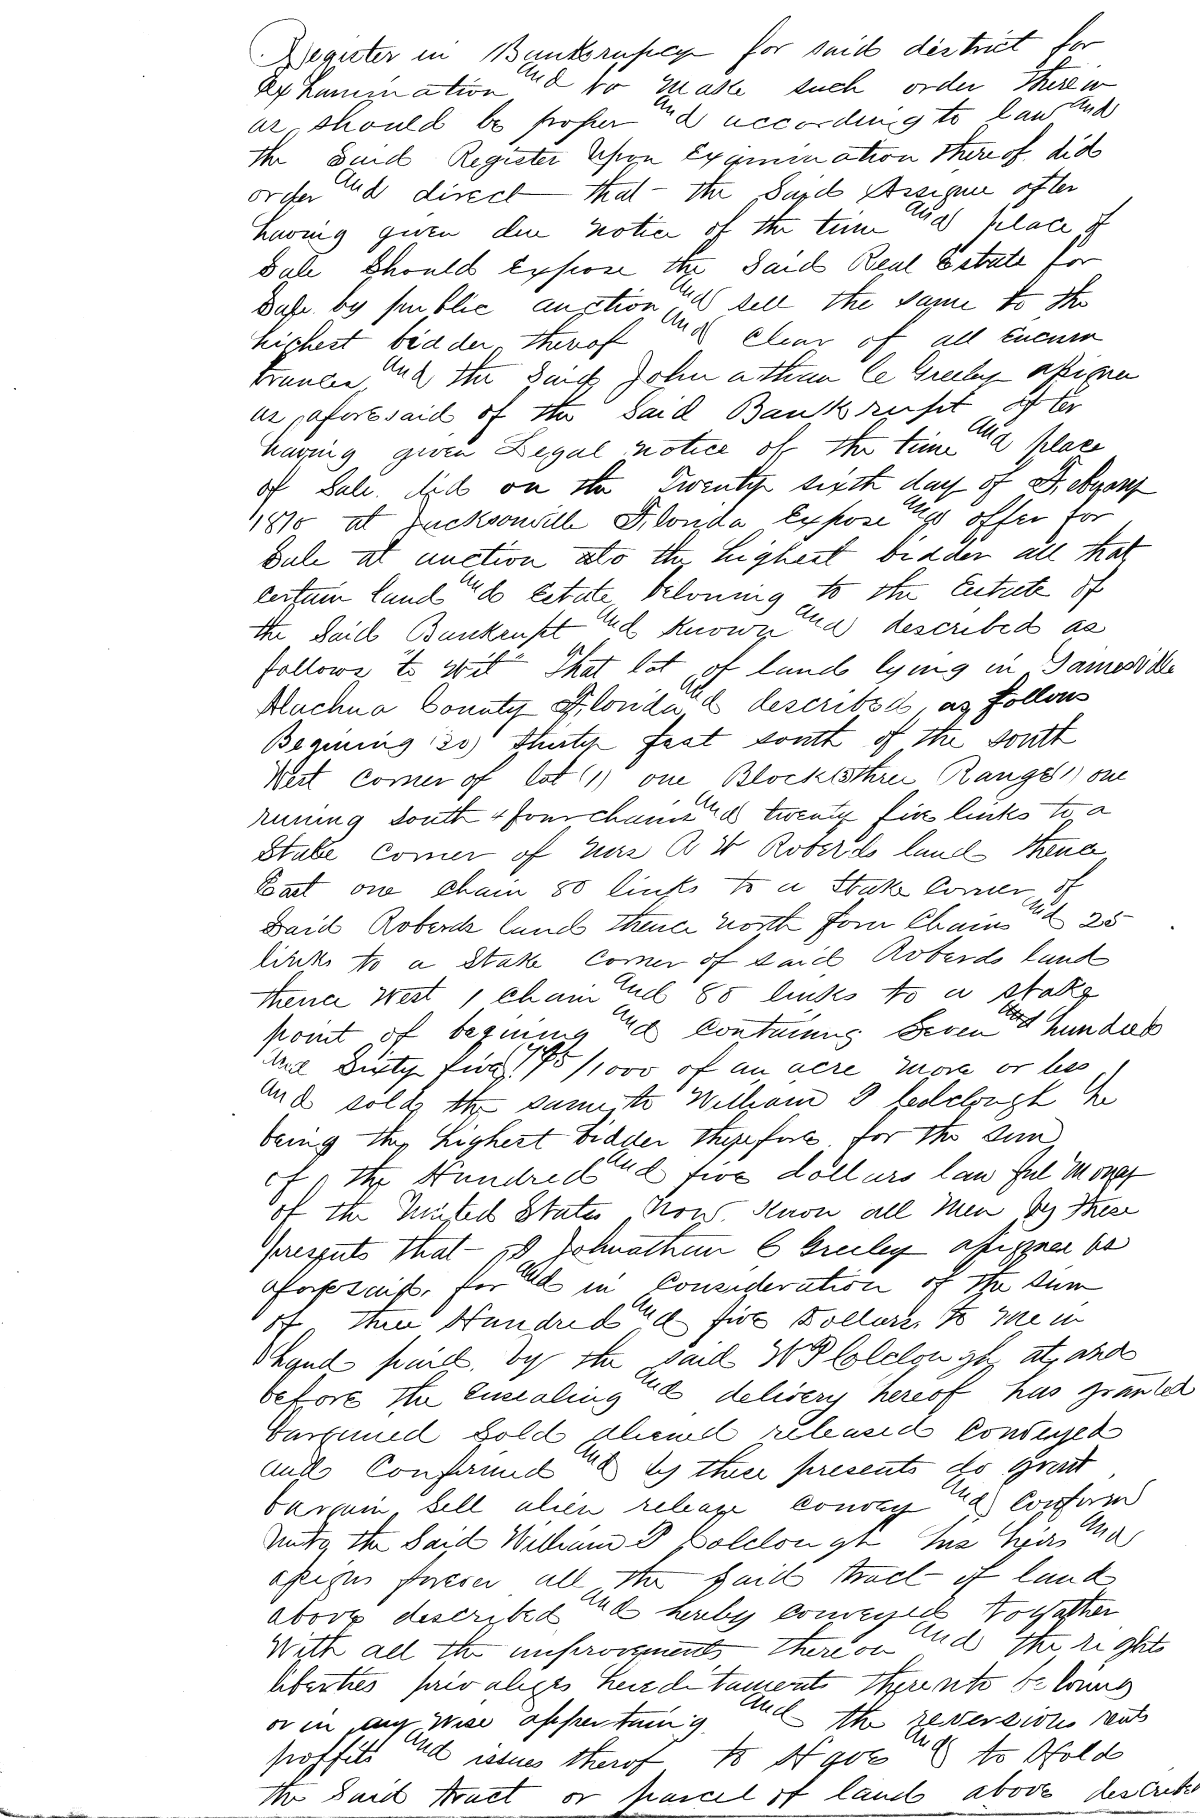 Register in Bankrupcy for said district for
Exhamination and to make such order therein
as should be proper and according to law and
the Said Register Upon Examination thereof did
order and direct that the Said Assignee after
having given due notice of the time and place of
Sale Should Expose the Said Real Estate for
Sale by public auction and sell the same to the
highest bidder therof and clear of all Encum
brances and the Said Johnathan C Greeley assignee
as aforesaid of the Said Bankrupt after
having given Legal notice of the time and place
of Sale did on the Twenty sixth day of Febuary
1870 at Jacksonville Florida Expose and offer for
Sale at auction to the highest bidder all that
certain land and Estate belonning to the Estate of
the Said Bankrupt and Known and described as
follows "to Wit" That lot of land lying in Gainesville
Alachua County Florida and described as follows
Begining (30) thirty feet south of the south
West corner of lot (1) one Block (3) three Range (1) one
runing south 4 four chains and twenty five links to a
Stake corner of Mrs A W Roberds land thence
East one chain 80 links to a Stake Corner of
Said Roberds land thence north four Chains and 25
links to a Stake corner of said Roberds land
thence West 1 chain and 80 links to a stake
point of begining and containing Seven hundred
and Sixty five 765/1000 of an acre more or less
and sold the same to William P Colclough he
being the highest bidder therefore for the sum
of the Hundred and five dollars lawful money
of the United States Now Know all Men by These
presents that I Johnathan C Greeley assignee as
aforesaid for and in Consideration of the sum
of three Hundred and five Dollars to me in
hand paid by the said W P Colclough at and
before the ensealing and delivery hereof has granted
bargained Sold aliened released conveyed
and Confirmed and by these presents do grant
bargain Sell alien release convey and Conform
unto the Said William P Colclough his heirs and
assigns forever all the said tract of land
above described and hereby conveyed together
With all the improvements thereon and the rights
liberties privaliges hereditaments therento beloning
or in any wise appertaning and the reversions rents
proffits and issues therof to Have and to Hold
the Said tract or parcel of land above described